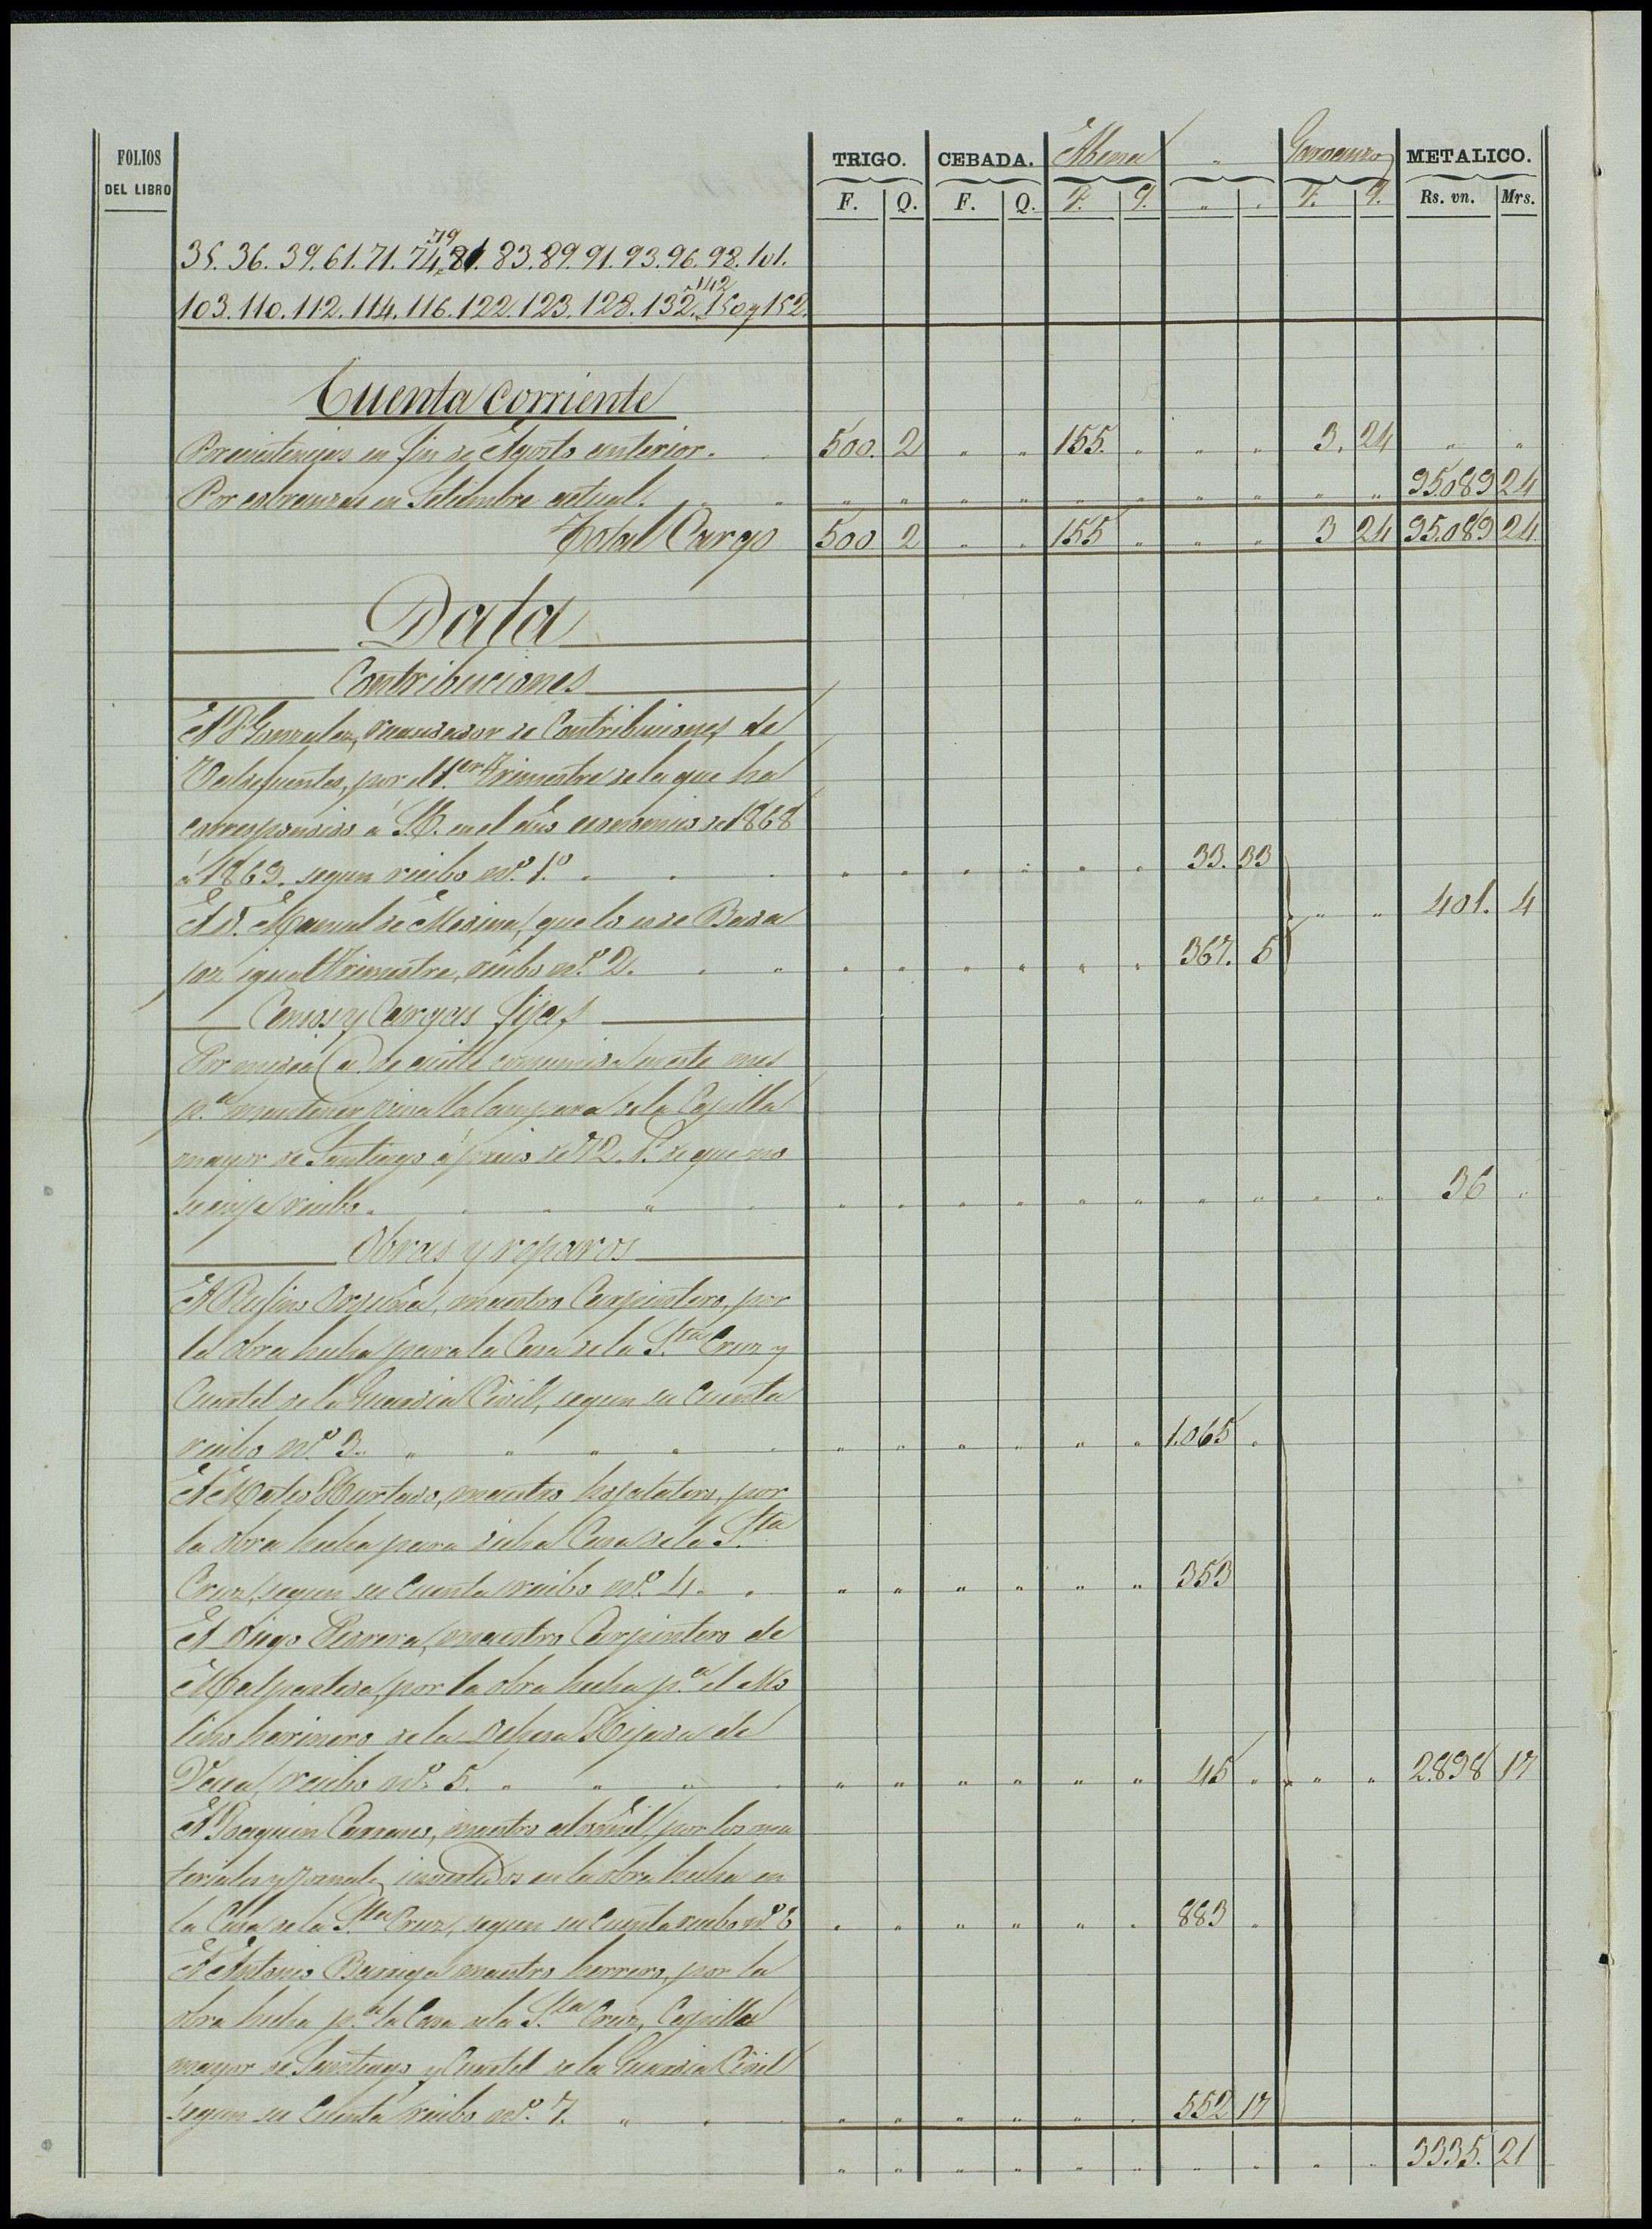 FOLIOS DEL LIBRO
TRIGO. CEBADA. Abena " Garbanzo METALICO.
F. Q. F. Q. F. Q. " " F. Q. Rs. vn. Mrs.
35. 36. 39. 61. 71. 74. 79 81. 83. 89. 91. 93. 96. 98. 101.
103. 110. 112. 114. 116. 122. 123. 128. 132. 142 150 y 152.
Cuenta corriente
Por existencias en fin de Agosto anterior. 500. 2 " " 155. " " " 3. 24 " "
Por cobranzas en Setiembre actual. " " " " " " " " " " 35.089 24
Total Cargo 500 2 " " 155 " " " 3 24 35.089 24
Data
Contribuciones
A D. Gonzalez, recaudador de Contribuciones de
Valdefuentes, por el 1.er Trimestre de la que ha
correspondido á S.E. en el año economico de 1868
á 1869. segun recibo nº. 1º. " " " " " " 33. 33
A D. Manuel de Medina, que lo es de Baza " " 401. 4
por igual Trimestre, recibo nº. 2. " " " " " " 367. 5
Censos y Cargas fijas
Por media @ de aceite consumida en este mes
p.a mantener viva la lampara de la Capilla
mayor de Santiago á precio de 72 r.s de que no
se exije recibo. " " " " " " " " " " 36 "
Obras y reparos
A Rufino Orduña, maestro Carpintero, por
la obra hecha para la Casa de la S.ta Cruz y
Cuartel de la Guardia Civil, segun su Cuenta
recibo nº. 3. " " " " " " 1.065 "
A Mateo Hurtado, maestro hojalatero, por
la obra hecha para dicha Casa de la S.ta
Cruz, segun su Cuenta recibo nº. 4. " " " " " " 353
A Diego Herrera, maestro Carpintero de
Malpartida, por la obra hecha p.a el Mo
lino harinero de la Dehesa Hijada de
Vaca, recibo nº. 5. " " " " " " 45 " " " 2.898 17
A Joaquin Carrasco, maestro albañil, por los ma
teriales y jornales invertidos en la obra hecha en
la Casa de la S.ta Cruz, segun su Cuenta recibo nº. 6 " " " " " " 883 "
A Antonio Barriga maestro herrero, por la
obra hecha p.a la Casa de la S.ta Cruz, Capilla
mayor de Santiago y Cuartel de la Guardia Civil
segun su Cuenta recibo nº. 7. " " " " " " 552 17
" " " " " " " " " " 3335. 21